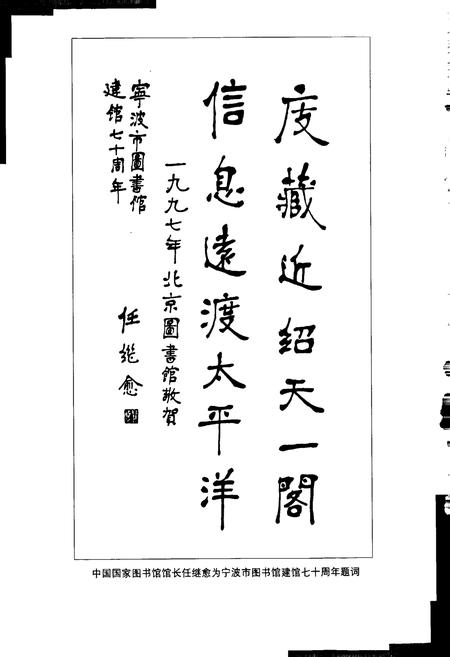 庋藏近绍天一阁
信息遠渡太平洋
一九九七年北京圖書馆敬賀
寧波市圖書馆
建馆七十周年
任继愈
中国国家图书馆馆长任继愈为宁波市图书馆建馆七十周年题词